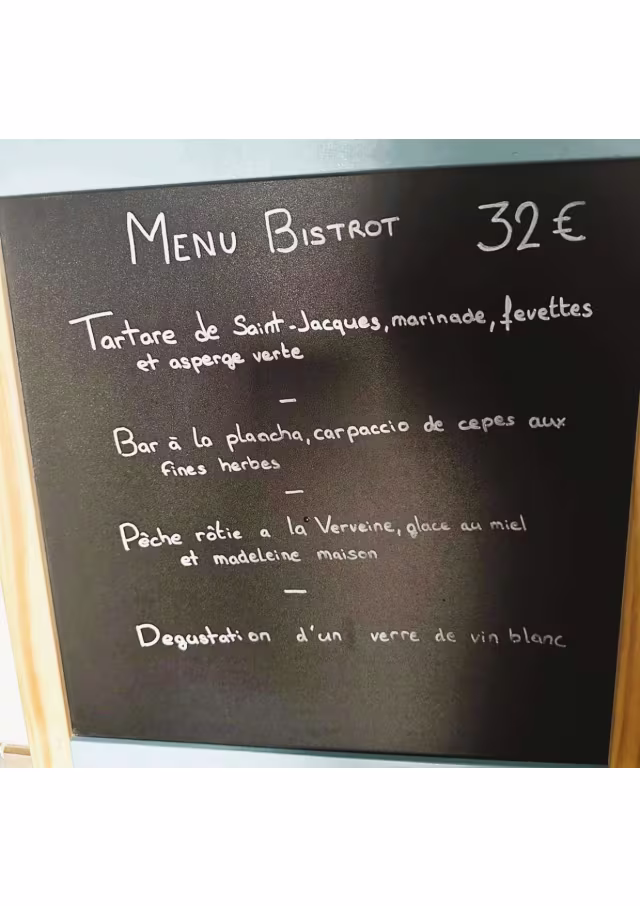 MENU BISTROT 32€
Tartare de Saint-Jacques, marinade, fevettes
et asperge verte
—
Bar à la plancha, carpaccio de cepes aux
fines herbes
—
Pêche rôtie a la Verveine, glace au miel
et madeleine maison
—
Degustation d'un verre de vin blanc